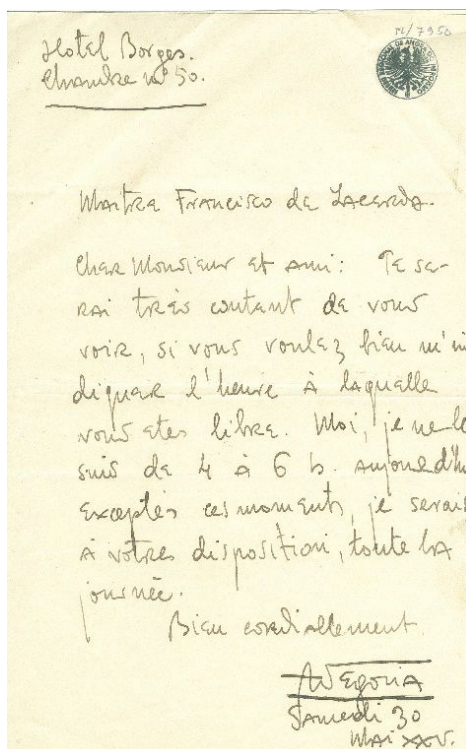 ML/7950
Hotel Borges.
Chambre nº 50.
Maitre Francisco de Lacerda.
Cher Monsieur et ami: Je se-
rai très content de vous
voir, si vous voulez bien m'in
diquar l'heure à laquelle
vous etes libre. Moi, je ne le
suis de 4 à 6 h. aujourd'hu
Exceptés ces moments, je serais
à votres disposition, toute la
journée.
Bien cordiallement
Samedi 30
Mai XXV.